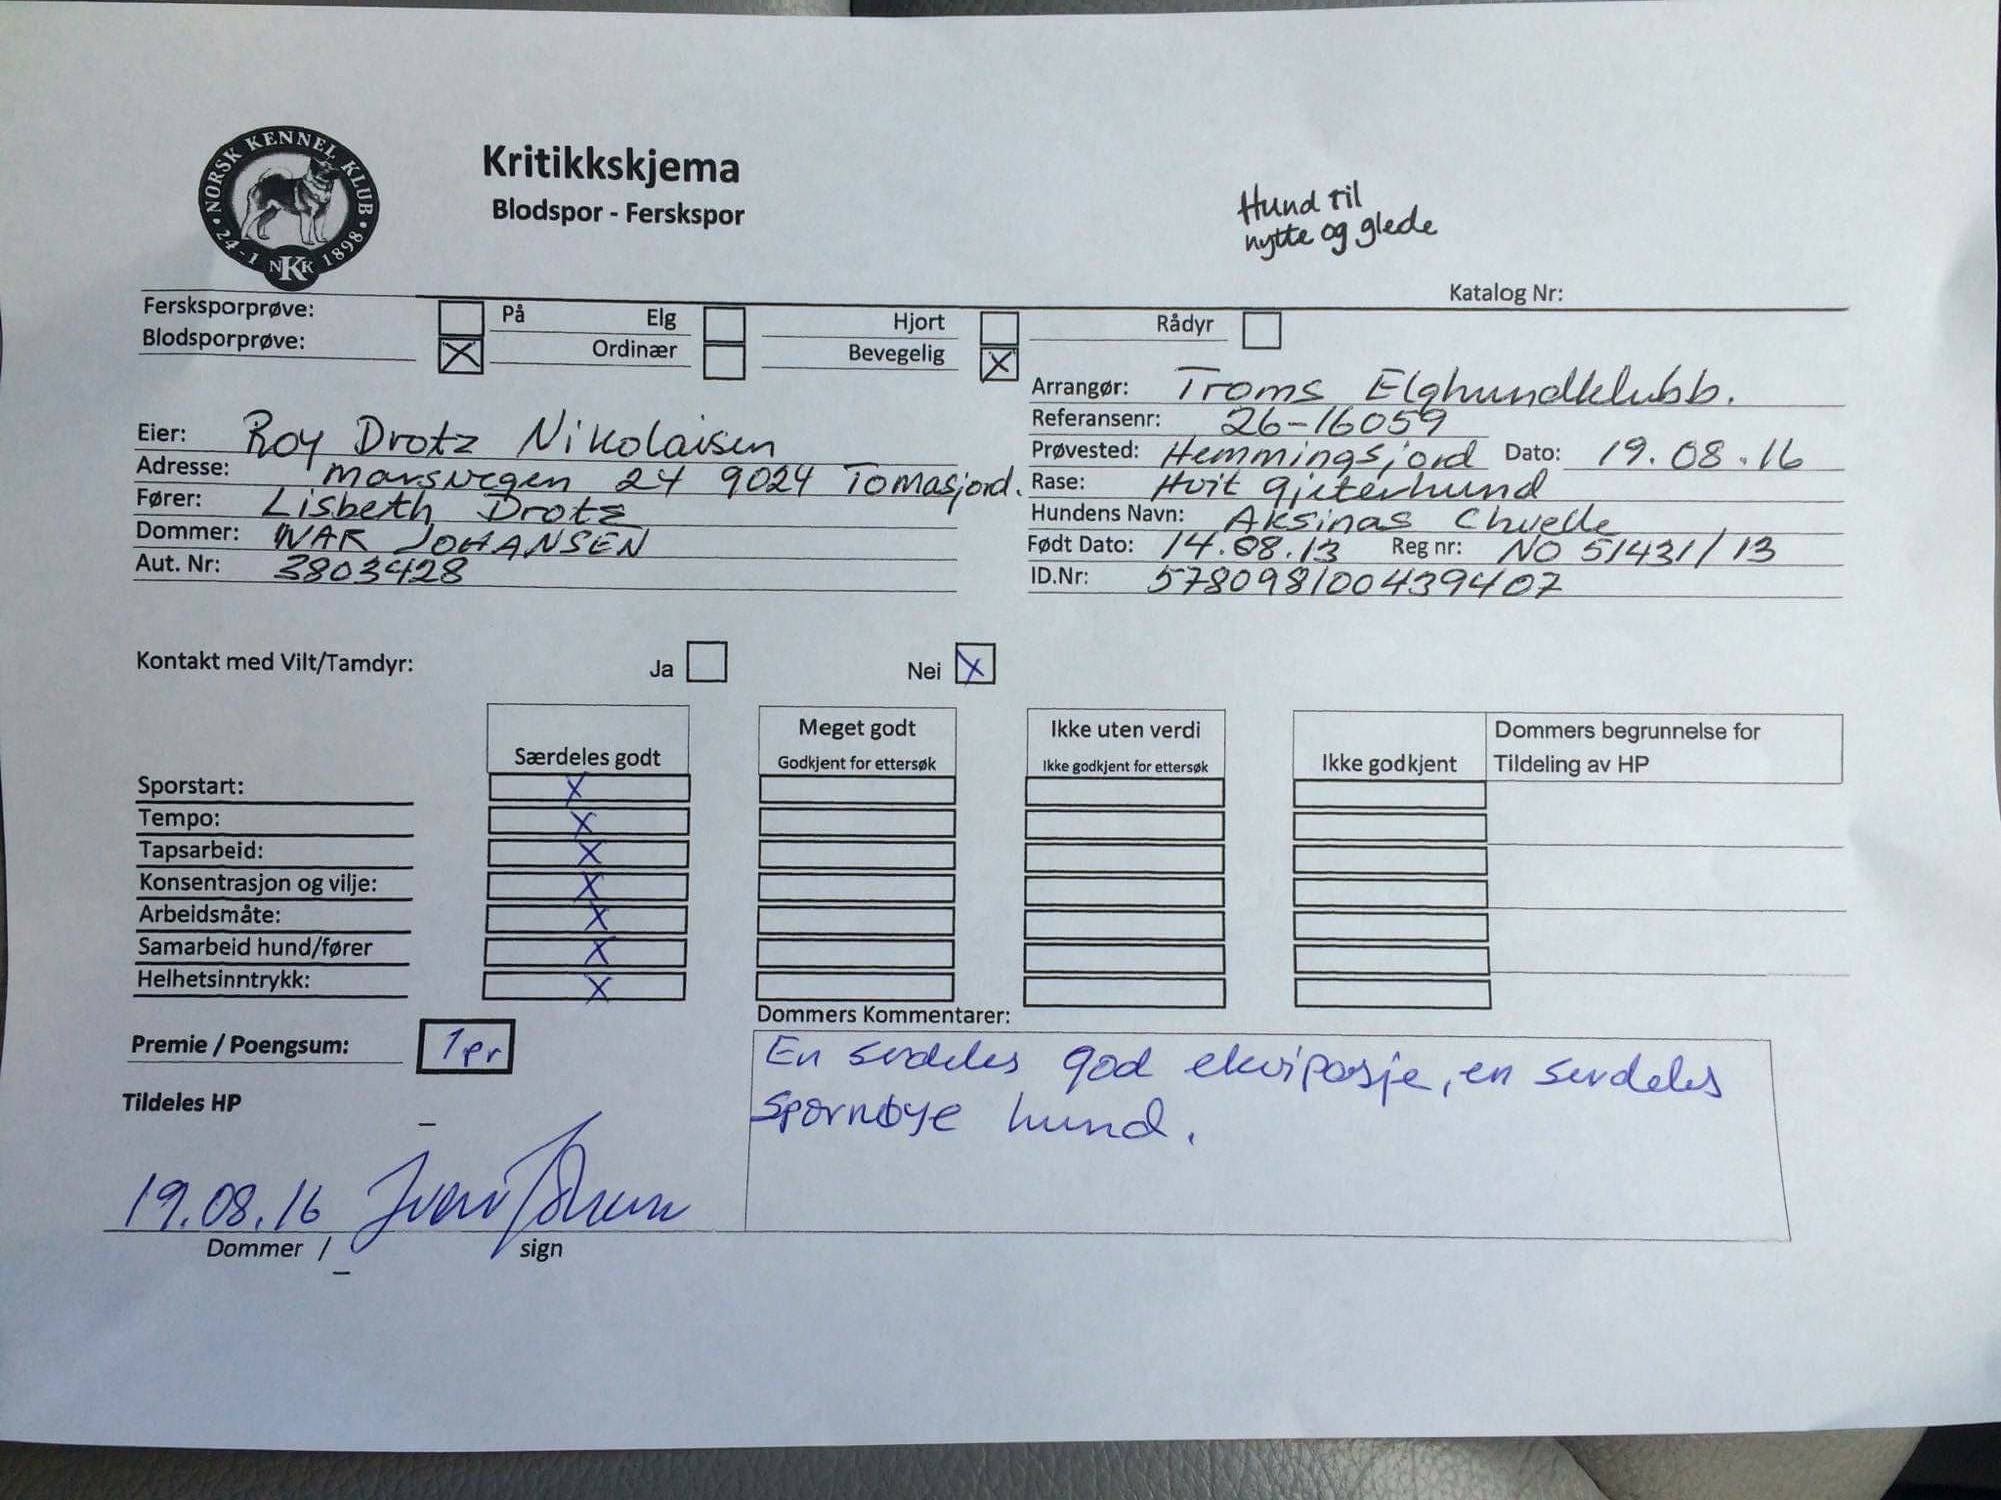 NORSK KENNEL KLUB
24-1 NKK 1898
Kritikkskjema
Blodspor - Ferskspor
Hund til
nytte og glede
Katalog Nr:
Fersksporprøve: På Elg Hjort Rådyr
Blodsporprøve: X Ordinær Bevegelig X
Arrangør: Troms Elghundklubb.
Referansenr: 26-16059
Eier: Roy Drotz Nikolaisen
Prøvested: Hemmingsjord Dato: 19.08.16
Adresse: Marsvegen 24 9024 Tomasjord.
Rase: Hvit gjeterhund
Fører: Lisbeth Drotz
Hundens Navn: Aksinas Chvelle
Dommer: IVAR JOHANSEN
Født Dato: 14.08.13 Reg nr: NO 51431/13
Aut. Nr: 3803428
ID.Nr: 578098100439407
Kontakt med Vilt/Tamdyr: Ja Nei X
Særdeles godt
Meget godt
Godkjent for ettersøk
Ikke uten verdi
Ikke godkjent for ettersøk
Ikke godkjent
Dommers begrunnelse for
Tildeling av HP
Sporstart: X
Tempo: X
Tapsarbeid: X
Konsentrasjon og vilje: X
Arbeidsmåte: X
Samarbeid hund/fører X
Helhetsinntrykk: X
Premie / Poengsum: 1 pr
Dommers Kommentarer:
En serdeles god ekvipasje, en serdeles
spornøye hund.
Tildeles HP
–
19.08.16 Ivar Johansen
Dommer /_ sign